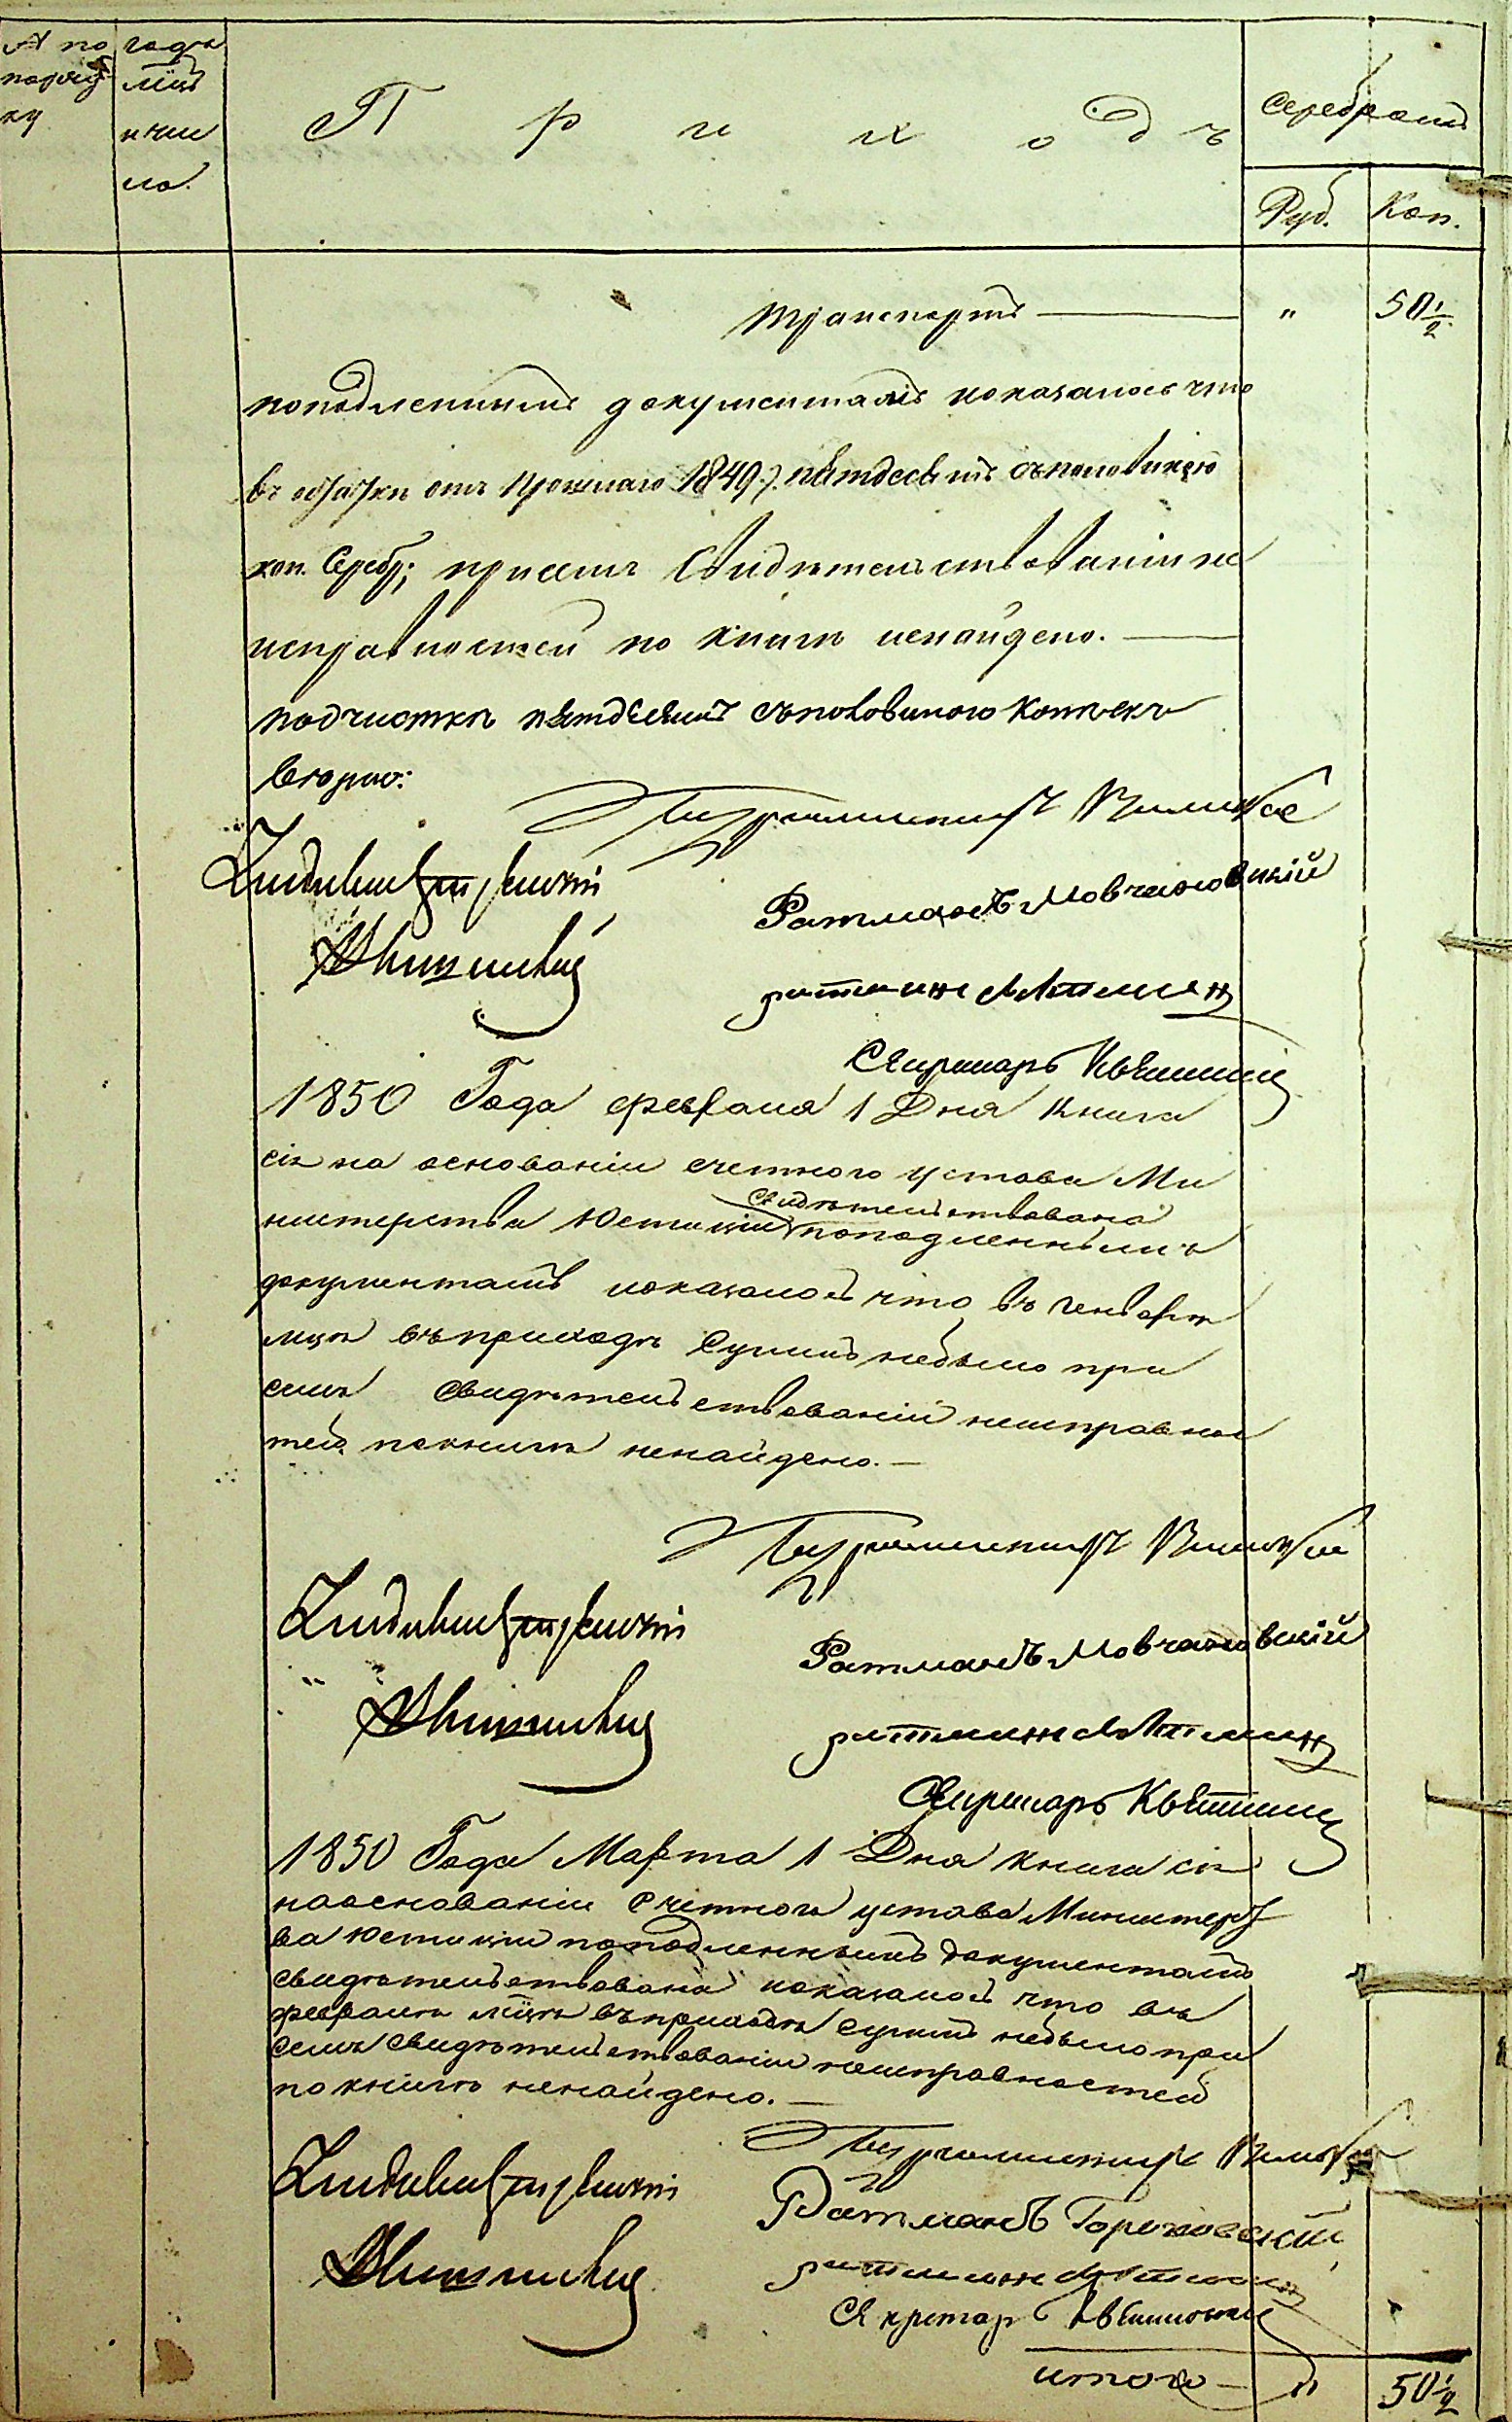 № по порядку
года мцъ и число.
Приходъ
Серебромъ
Руб. Коп.
Транспортъ — " 50 1/2
поподленнымъ документамъ показалось что
въ остатки отъ прошлаго 1849 г. пятдесятъ съполовиною
коп. Серебр; присемъ Свидѣтельствованіи не
исправностей по книгѣ ненайдено. —
подчисткѣ пятдесятъ съполовиною копѣекъ
вѣрно:
Ратманъ Мовчановскій
ратман
Секретарь
1850 Года февраля 1 Дня Книга
сія на основаніи счетного устава Ми
нистерства Юстиціи свидѣтельствована поподленнымъ
документамъ показалось что въ генварѣ
мцѣ въприходѣ Суммъ небыло при
семъ Свидѣтельствованіи неисправнос
тей покнигѣ ненайдено. —
Ратманъ Мовчановскій
ратман
Секретарь
1850 Года Марта 1 Дня книга сія
наоснованіи Счетнога устава Министерст
ва Юстиціи поподленнымъ документамъ
свидѣтельствована показалось что въ
февралѣ мцѣ въприходѣ суммъ небыло при
семъ Свидѣтельствованіи неисправностей
по книгѣ ненайдено. —
Ратманъ Гороховскій
ратман
Секретарь
итого — " 50 1/2